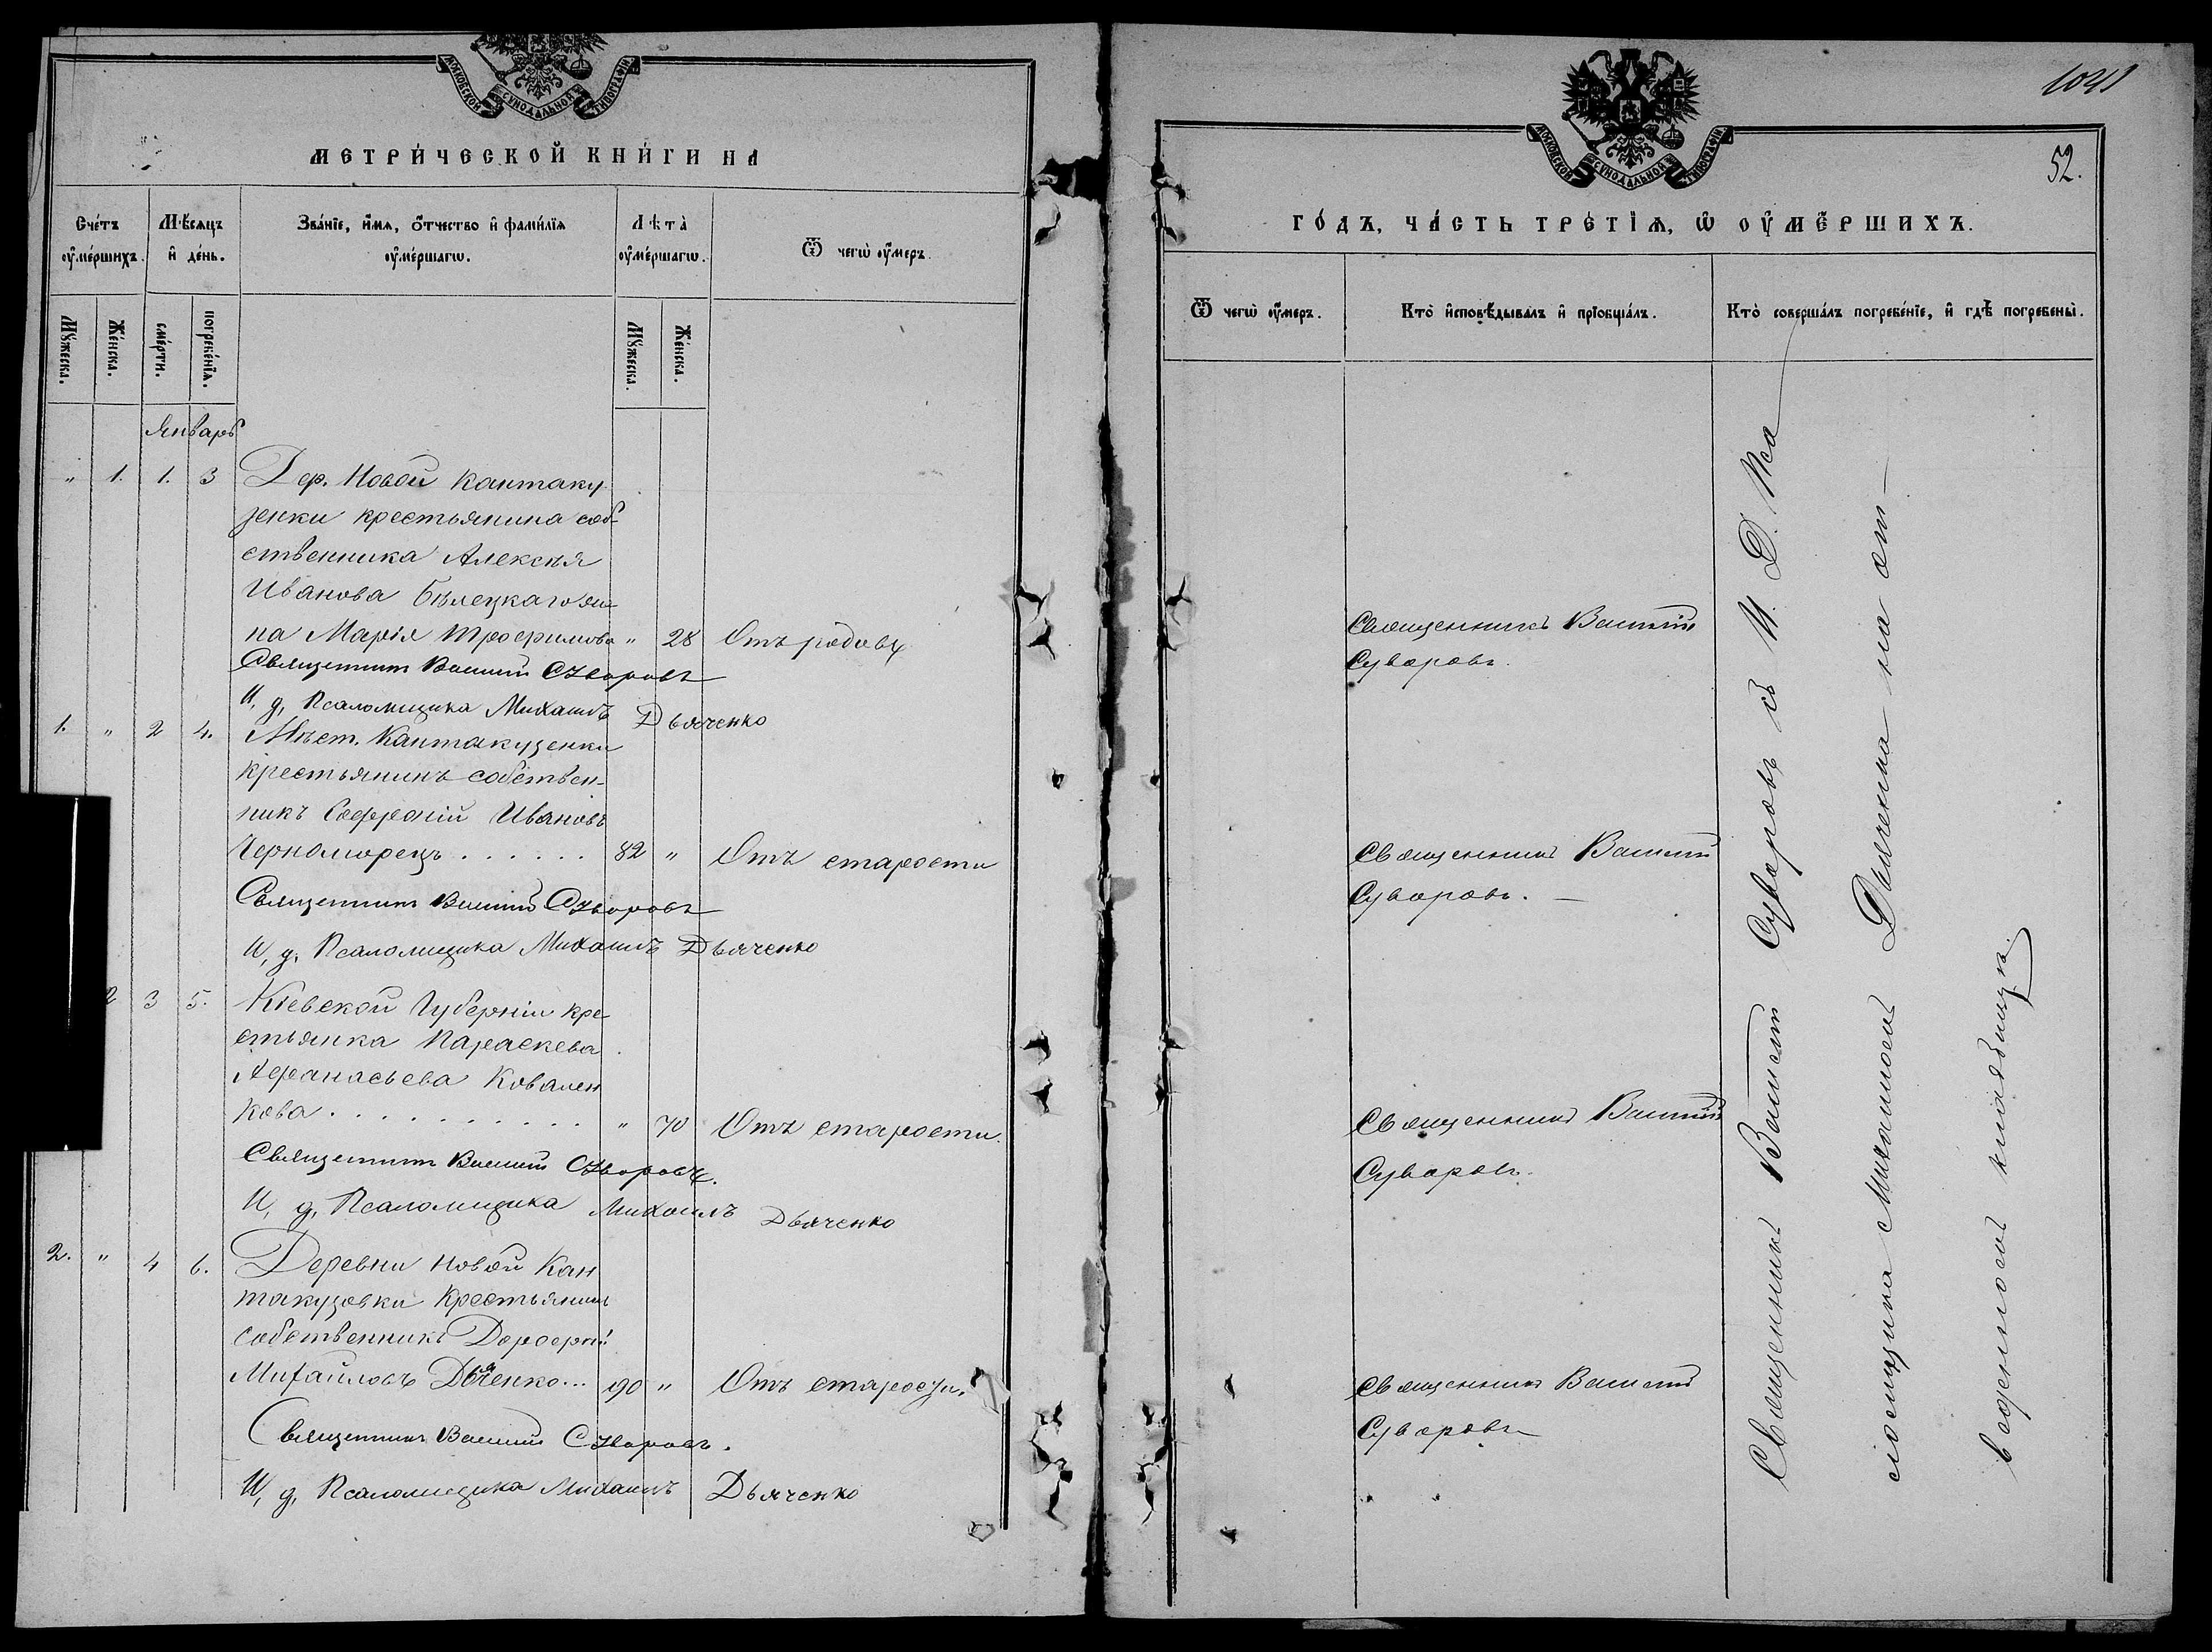 МОСКОВСКОЙ СѴНОДАЛЬНОЙ ТИПОГРАФІИ
МЕТРИ́ЧЕСКОЙ КНИ́ГИ НА
Сче́тъ оу҆ме́ршихъ.
Мѣ́сяцъ и҆ де́нь.
Зва́нїе, и҆́мя, ѻ҆́тчество и҆ фами́лїя оу҆ме́ршагѡ.
Лѣта̀ оу҆ме́ршагѡ.
Ѿ чегѡ̀ оу҆́меръ.
Мꙋ́жеска.
Же́нска.
сме́рти.
погребе́нїѧ.
Мꙋ́жеска.
Же́нска.
Январь
" 1. 1. 3 Дер. Новой Кантаку
зенки крестьянина соб-
ственника Алексѣя
Иванова Бѣлецкаго же-
на Марія Трофимова " 28 Отъ родовъ
Священникъ Василій Суворовъ
И, д, Псаломщика Михаилъ Дьяченко
1. " 2 4. Мѣст. Кантакузенки
крестьянинъ собствен-
никъ Софроній Ивановъ
Черноморецъ . . . . . . 82 " Отъ старости
Священникъ Василій Суворовъ
И, д, Псаломщика Михаилъ Дьяченко
2 3 5. Кіевской Губерніи кре-
стьянка Параскева
Афанасьева Ковален
кова . . . . . . . . . . " 70 Отъ старости.
Священникъ Василій Суворовъ.
И, д, Псаломщика Михаилъ Дьяченко
2. " 4 6. Деревни Новой Кан
такузовки Крестьянинъ
собственникъ Дорофей
Михайловъ Дьяченко... 90 " Отъ старости.
Священникъ Василій Суворовъ.
И, д, Псаломщика Михаилъ Дьяченко
1041
52.
МОСКОВСКОЙ СѴНОДАЛЬНОЙ ТИПОГРАФІИ
ГО́ДЪ, ЧА́СТЬ ТРЕ́ТЇѦ, Ѡ҆ ОУ҆МЕ́РШИХЪ.
Ѿ чегѡ̀ оу҆́меръ.
Кто̀ и҆сповѣ́дывалъ и҆ прїобща́лъ.
Кто̀ соверша́лъ погребе́нїе, и҆ гдѣ̀ погребены̀.
Священникъ Василій
Суворовъ.
Священникъ Василій
Суворовъ. —
Священникъ Василій
Суворовъ.
Священникъ Василій
Суворовъ
Священникъ Василій Суворовъ съ И. Д. Пса
ломщика Михаиломъ Дьяченко на от-
веденномъ кладбищѣ.